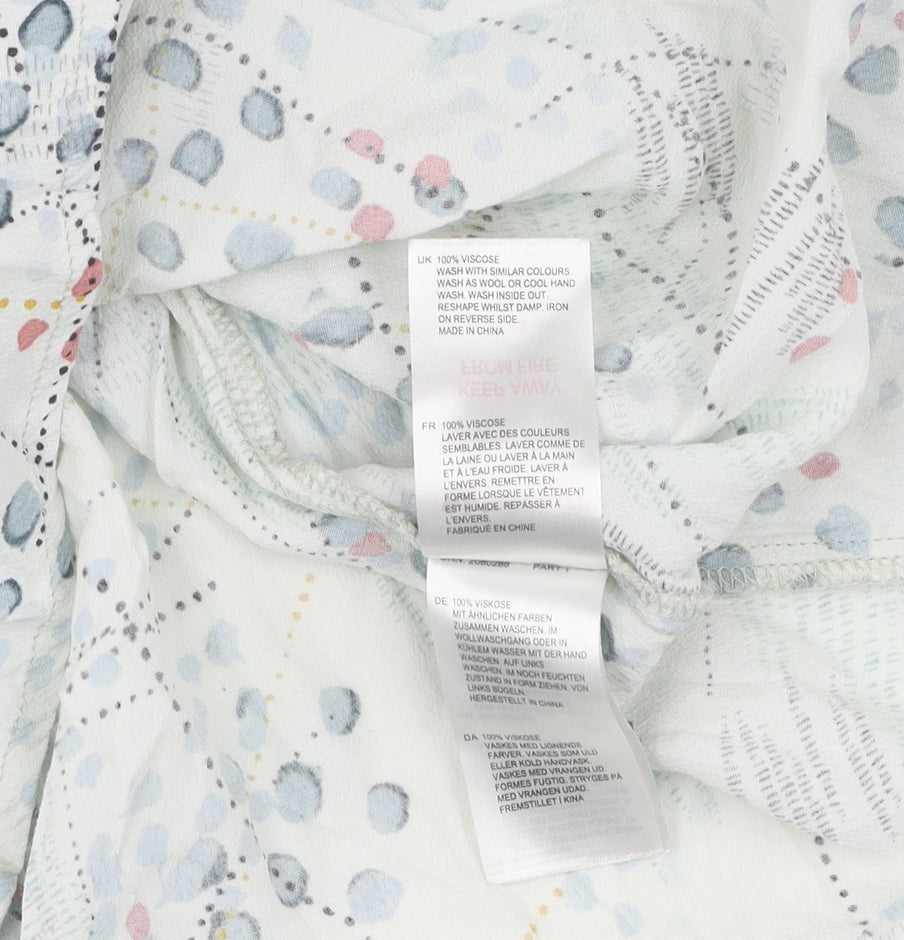 UK 100% VISCOSE
WASH WITH SIMILAR COLOURS
WASH AS WOOL OR COOL HAND
WASH. WASH INSIDE OUT.
RESHAPE WHILST DAMP. IRON
ON REVERSE SIDE.
MADE IN CHINA
KEEP AWAY
FROM FIRE
FR 100% VISCOSE
LAVER AVEC DES COULEURS
SEMBLABLES. LAVER COMME DE
LA LAINE OU LAVER À LA MAIN
ET À L'EAU FROIDE. LAVER À
L'ENVERS. REMETTRE EN
FORME LORSQUE LE VÊTEMENT
EST HUMIDE. REPASSER À
L'ENVERS.
FABRIQUÉ EN CHINE
PART 1
DE 100% VISKOSE
MIT ÄHNLICHEN FARBEN
ZUSAMMEN WASCHEN. IM
WOLLWASCHGANG ODER IN
KÜHLEM WASSER MIT DER HAND
WASCHEN. AUF LINKS
WASCHEN. IM NOCH FEUCHTEN
ZUSTAND IN FORM ZIEHEN. VON
LINKS BÜGELN
HERGESTELLT IN CHINA
DA 100% VISKOSE
VASKES MED LIGNENDE
FARVER. VASKES SOM ULD
ELLER KOLD HÅNDVASK.
VASKES MED VRANGEN UD.
FORMES FUGTIG. STRYGES PÅ
MED VRANGEN UDAD.
FREMSTILLET I KINA